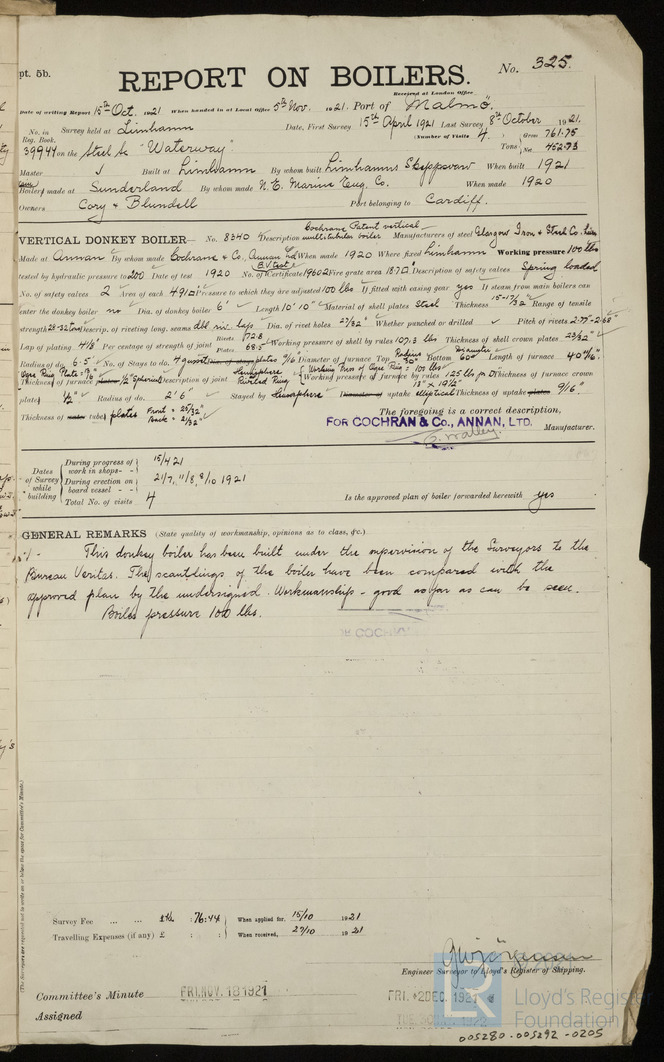 pt. 5b.
REPORT ON BOILERS.
No. 325.
Received at London Office
Date of writing Report 15th Oct. 1921 When handed in at Local Office 5th Nov. 1921. Port of Malmö.
No. in Reg. Book. Survey held at Limhamn Date, First Survey 15th April 1921 Last Survey 8th October 1921.
(Number of Visits 4.)
39944 on the Steel Sc "Waterway" Tons Gross 761.75 Net 452.73
Master Built at Limhamn By whom built Limhamns Skeppsvarv When built 1921
Boilers made at Sunderland By whom made N. E. Marine Eng. Co. When made 1920
Owners Cory & Blundell Port belonging to Cardiff.
VERTICAL DONKEY BOILER— No. 8340 Description Cochrane Patent vertical multitubular boiler Manufacturers of steel Glasgow Iron & Steel Co.
Made at Annan By whom made Cochrane & Co., Annan Ld When made 1920 Where fixed Limhamn Working pressure 100 lbs
tested by hydraulic pressure to 200 Date of test 1920 B.V. test No. of Certificate 19602 Fire grate area 18.7 Description of safety valves Spring loaded
No. of safety valves 2 Area of each 4.91 Pressure to which they are adjusted 100 lbs If fitted with easing gear yes If steam from main boilers can
enter the donkey boiler no Dia. of donkey boiler 6' Length 10' 10" Material of shell plates Steel Thickness 15-17/32" Range of tensile
strength 28-32 tons Descrip. of riveting long. seams dbl. riv. lap Dia. of rivet holes 27/32" Whether punched or drilled Pitch of rivets 2.77"-2.68"
Lap of plating 4 1/8" Per centage of strength of joint Rivets 72.8 Plates 68.5 Working pressure of shell by rules 107.3 lbs Thickness of shell crown plates 23/32"
Radius of do. 6' 5" No. of Stays to do. 4 gusset plates 9/16" Diameter of furnace Top Radius 30" Bottom Diameter 60" Length of furnace 4' 0 1/16"
Ogee Ring Plate = Thickness of furnace 1/2" Spherical Description of joint Hemisphere Riveted Ring Working Pres of Ogee Ring = 101 lbs Working pressure of furnace by rules 125 lbs Thickness of furnace crown
plates 1/2" Radius of do. 2' 6" Stayed by Hemisphere Diameter of uptake 13" x 19 1/2" elliptical Thickness of uptake plates 9/16"
Thickness of water tubes plates Front = 25/32" Back = 21/32"
The foregoing is a correct description,
FOR COCHRAN & Co., ANNAN, LTD.
Manufacturer.
Dates of Survey while building
During progress of work in shops - - 15/4 21
During erection on board vessel - - - 21/7, 11/8, 8/10 1921
Total No. of visits 4
Is the approved plan of boiler forwarded herewith yes
GENERAL REMARKS (State quality of workmanship, opinions as to class, &c.)
This donkey boiler has been built under the supervision of the Surveyors to the
Bureau Veritas. The scantlings of the boiler have been compared with the
approved plan by the undersigned. Workmanship - good as far as can be seen.
Boiler pressure 100 lbs.
Survey Fee ... ... £ Kr. : 76:44 : When applied for, 15/10 1921
Travelling Expenses (if any) £ : : When received, 27/10 1921
Engineer Surveyor to Lloyd's Register of Shipping.
Committee's Minute FRI. NOV. 18 1921 FRI. 2 DEC. 1921
Assigned
LR Lloyd's Register Foundation
005280-005292-0205